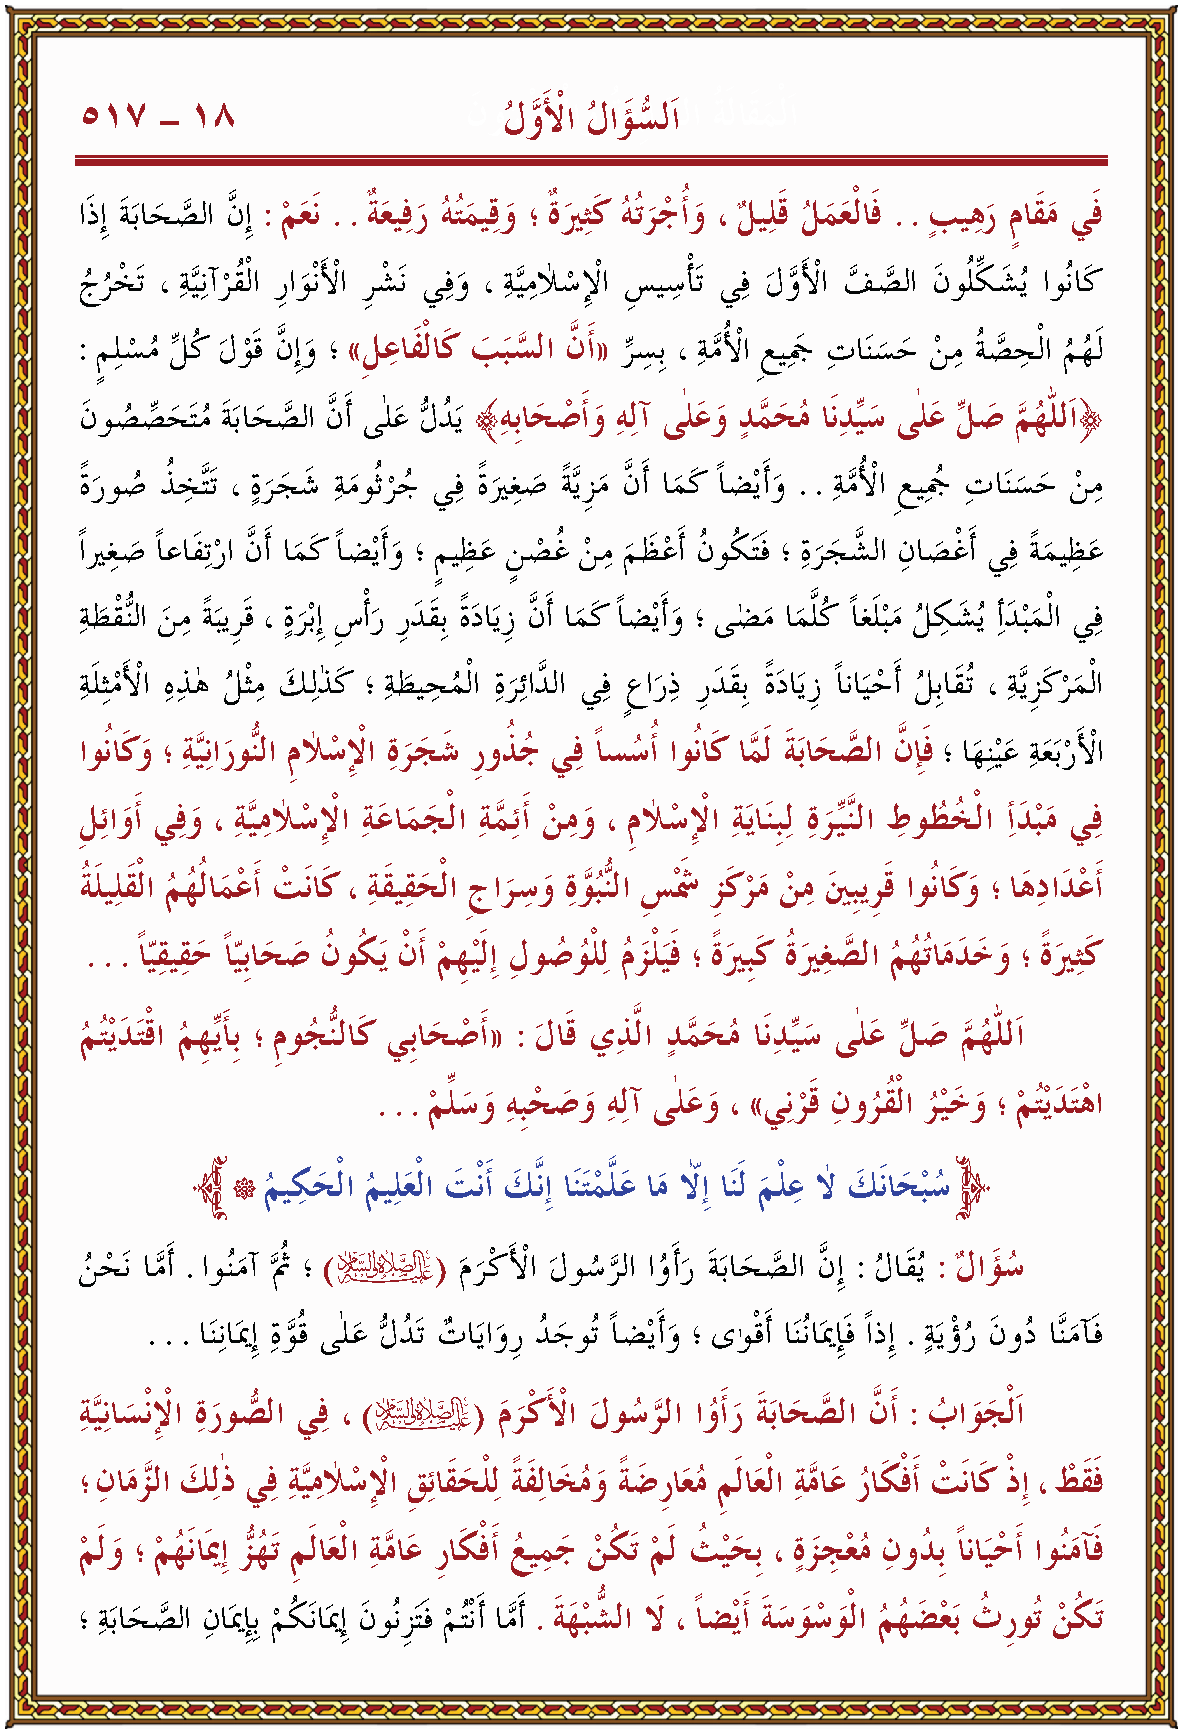 اَلسُّؤَالُ الْأَوَّلُ ١٨ – ٥١٧
فَي مَقَامٍ رَهِيبٍ . . فَالْعَمَلُ قَلِيلٌ ، وَأُجْرَتُهُ كَثِيَرةٌ ؛ وَقِيمَتُهُ رَفِيعَةٌ . . نَعَمْ : إِنَّ الصَّحَابَةَ إِذَا
كَانُوا يُشَكِّلُونَ الصَّفَّ الْأَوَّلَ فِي تَأْسِيسِ الْإِسْلاٰمِيَّةِ ، وَفِي نَشْرِ الْأَنْوَارِ الْقُرْآنِيَّةِ ، تَخْرُجُ
لَهُمُ الْحِصَّةُ مِنْ حَسَنَاتِ جَمِيعِ الْأُمَّةِ ، بِسِرِّ «أَنَّ السَّبَبَ كَالْفَاعِلِ» ؛ وَإِنَّ قَوْلَ كُلِّ مُسْلِمٍ :
﴿اَللّٰهُمَّ صَلِّ عَلٰى سَيِّدِنَا مُحَمَّدٍ وَعَلٰى آلِهِ وَأَصْحَابِهِ﴾ يَدُلُّ عَلٰى أَنَّ الصَّحَابَةَ مُتَحَصِّصُونَ
مِنْ حَسَنَاتِ جُمِيعِ الْأُمَّةِ . . وَأَيْضاً كَمَا أَنَّ مَزِيَّةً صَغِيَرةً فِي جُرْثُومَةِ شَجَرَةٍ ، تَتَّخِذُ صُورَةً
عَظِيمَةً فِي أَغْصَانِ الشَّجَرَةِ ؛ فَتَكُونُ أَعْظَمَ مِنْ غُصْنٍ عَظِيمٍ ؛ وَأَيْضاً كَمَا أَنَّ ارْتِفَاعاً صَغِيراً
فِي الْمَبْدَأِ يُشَكِلُ مَبْلَغاً كُلَّمَا مَضٰى ؛ وَأَيْضاً كَمَا أَنَّ زِيَادَةً بِقَدَرِ رَأْسِ إِبْرَةٍ ، قَرِيبَةً مِنَ النُّقْطَةِ
الْمَرْكَزِيَّةِ ، تُقَابِلُ أَحْيَاناً زِيَادَةً بِقَدَرِ ذِرَاعٍ فِي الدَّائِرَةِ الْمُحِيطَةِ ؛ كَذٰلِكَ مِثْلُ هٰذِهِ الْأَمْثِلَةِ
الْأَرْبَعَةِ عَيْنِهَا ؛ فَإِنَّ الصَّحَابَةَ لَمَّا كَانُوا أُسُساً فِي جُذُورِ شَجَرَةِ الْإِسْلاٰمِ النُّورَانِيَّةِ ؛ وَكَانُوا
فِي مَبْدَأِ الْخُطُوطِ النَّيِّرَةِ لِبِنَايَةِ الْإِسْلاٰمِ ، وَمِنْ أَئِمَّةِ الْجَمَاعَةِ الْإِسْلاٰمِيَّةِ ، وَفِي أَوَائِلِ
أَعْدَادِهَا ؛ وَكَانُوا قَرِيبِينَ مِنْ مَرْكَزِ شَمْسِ النُّبُوَّةِ وَسِرَاجِ الْحَقِيقَةِ ، كَانَتْ أَعْمَالُهُمُ الْقَلِيلَةُ
كَثِيَرةً ؛ وَخَدَمَاتُهُمُ الصَّغِيَرةُ كَبِيَرةً ؛ فَيَلْزَمُ لِلْوُصُولِ إِلَيْهِمْ أَنْ يَكُونُ صَحَابِيّاً حَقِيقِيّاً . . .
اَللّٰهُمَّ صَلِّ عَلٰى سَيِّدِنَا مُحَمَّدٍ الَّذِي قَالَ : «أَصْحَابِي كَالنُّجُومِ ؛ بِأَيِّهِمُ اقْتَدَيْتُمُ
اهْتَدَيْتُمْ ؛ وَخَيْرُ الْقُرُونِ قَرْنِي» ، وَعَلٰى آلِهِ وَصَحْبِهِ وَسَلِّمْ . . .
﴿سُبْحَانَكَ لاٰ عِلْمَ لَنَا إِلاّٰ مَا عَلَّمْتَنَا إِنَّكَ أَنْتَ الْعَلِيمُ الْحَكِيمُ ۞﴾
سُؤَالٌ : يُقَالُ : إِنَّ الصَّحَابَةَ رَأَوُا الرَّسُولَ الْأَكْرَمَ (عليه الصلاة والسلام) ؛ ثُمَّ آمَنُوا . أَمَّا نَحْنُ
فَآمَنَّا دُونَ رُؤْيَةٍ . إِذاً فَإِيمَانُنَا أَقْوٰى ؛ وَأَيْضاً تُوجَدُ رِوَايَاتٌ تَدُلُّ عَلٰى قُوَّةِ إِيمَانِنَا . . .
اَلْجَوَابُ : أَنَّ الصَّحَابَةَ رَأَوُا الرَّسُولَ الْأَكْرَمَ (عليه الصلاة والسلام) ، فِي الصُّورَةِ الْإِنْسَانِيَّةِ
فَقَطْ ، إِذْ كَانَتْ أَفْكَارُ عَامَّةِ الْعَالَمِ مُعَارِضَةً وَمُخَالِفَةً لِلْحَقَائِقِ الْإِسْلاٰمِيَّةِ فِي ذٰلِكَ الزَّمَانِ ؛
فَآمَنُوا أَحْيَاناً بِدُونِ مُعْجِزَةٍ ، بِحَيْثُ لَمْ تَكُنْ جَمِيعُ أَفْكَارِ عَامَّةِ الْعَالَمِ تَهُزُّ إِيمَانَهُمْ ؛ وَلَمْ
تَكُنْ تُورِثُ بَعْضَهُمُ الْوَسْوَسَةَ أَيْضاً ، لَا الشُّبْهَةَ . أَمَّا أَنْتُمْ فَتَزِنُونَ إِيمَانَكُمْ بِإِيمَانِ الصَّحَابَةِ ؛